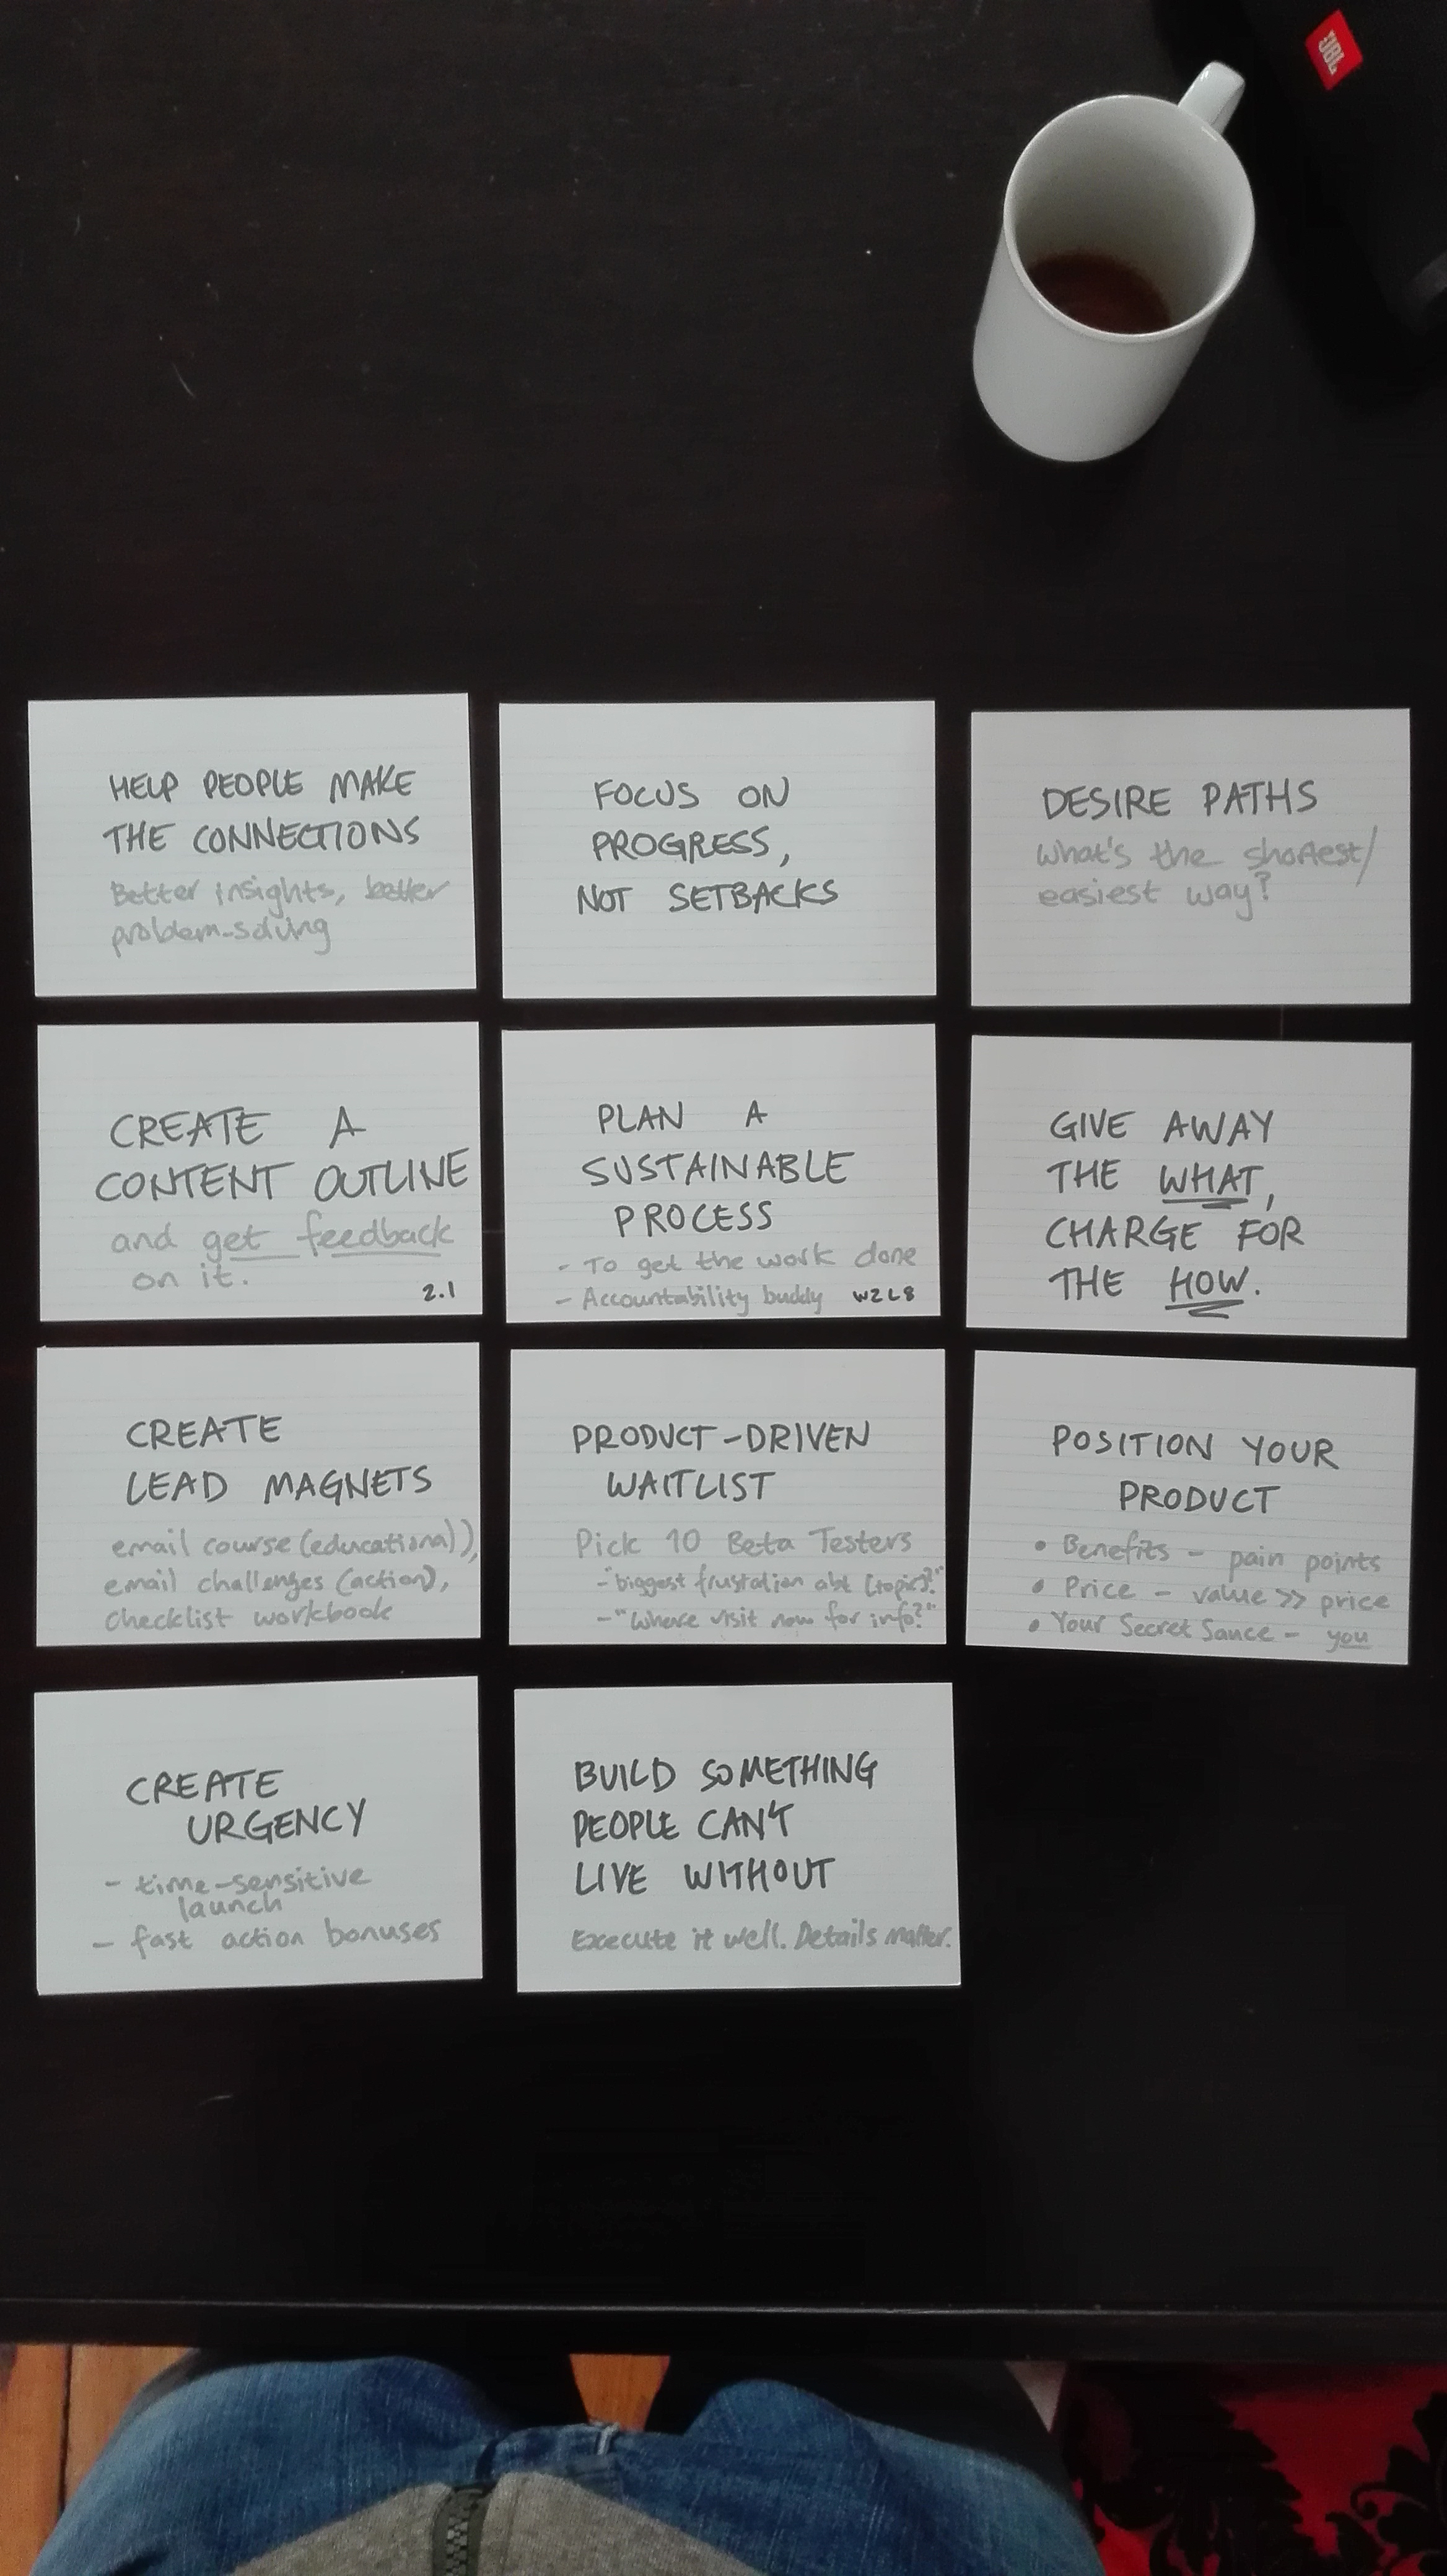 JBL
HELP PEOPLE MAKE
THE CONNECTIONS
Better insights, better
problem-solving
FOCUS ON
PROGRESS,
NOT SETBACKS
DESIRE PATHS
What's the shortest/
easiest way?
CREATE A
CONTENT OUTLINE
and get feedback
on it.
2.1
PLAN A
SUSTAINABLE
PROCESS
- To get the work done
- Accountability buddy W2L8
GIVE AWAY
THE WHAT,
CHARGE FOR
THE HOW.
CREATE
LEAD MAGNETS
email course (educational)),
email challenges (action),
checklist workbook
PRODUCT-DRIVEN
WAITLIST
Pick 10 Beta Testers
- "biggest frustation abt [topic]?"
- "Where visit now for info?"
POSITION YOUR
PRODUCT
• Benefits - pain points
• Price - value >> price
• Your Secret Sauce - you
CREATE
URGENCY
- time-sensitive
launch
- fast action bonuses
BUILD SOMETHING
PEOPLE CAN'T
LIVE WITHOUT
Execute it well. Details matter.